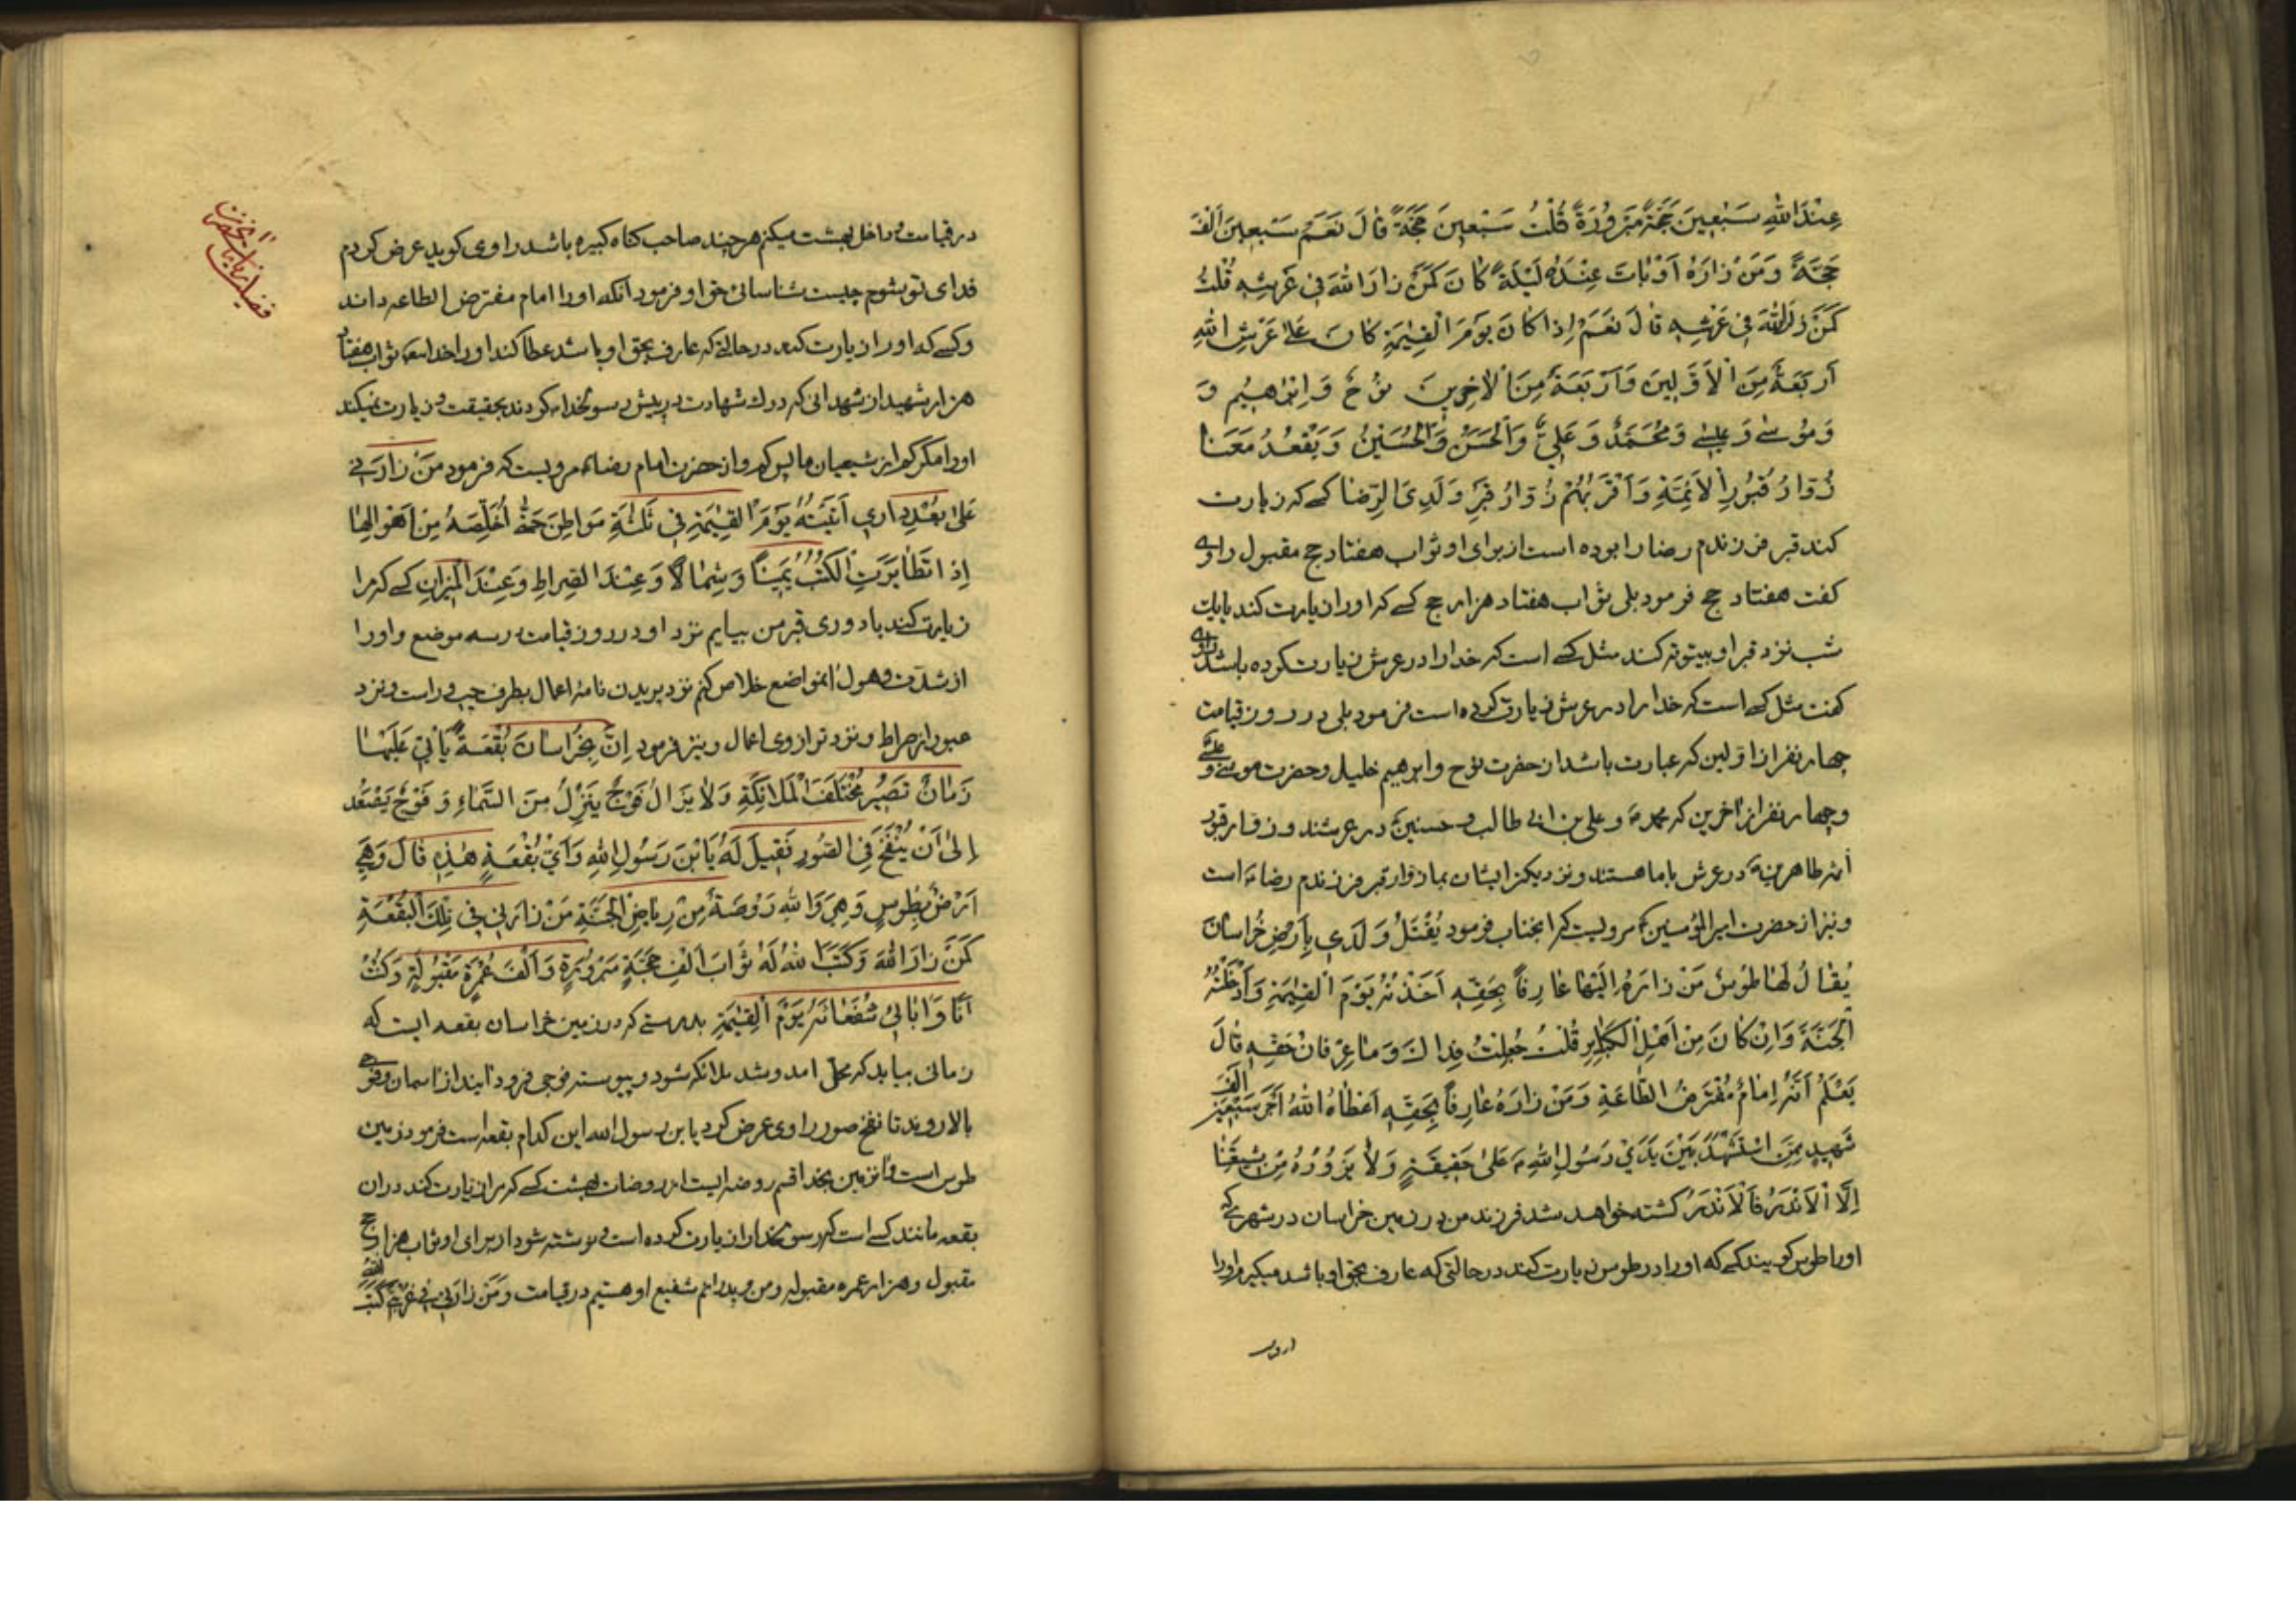 عِنْدَ اللهِ سَبْعِینَ حَجَّةً مَبْرُورَةً قُلْتُ سَبْعِینَ حَجَّةً قالَ نَعَمْ سَبْعِینَ اَلْفَ
حَجَّةً وَمَنْ زارَهُ اَوْ باتَ عِنْدَهُ لَیْلَةً کانَ کَمَنْ زارَ اللهَ فی عَرْشِهِ قُلْتُ
کَمَنْ زارَ اللهَ فی عَرْشِهِ قالَ نَعَمْ اِذا کانَ یَوْمَ الْقِیٰمَةِ کانَ عَلیٰ عَرْشِ اللهِ
اَرْبَعَةٌ مِنَ الْاَوَّلینَ وَاَرْبَعَةٌ مِنَ الْاٰخِرینَ نُوحٌ وَ اِبْرٰاهیمُ وَ
وَ مُوسیٰ وَ عیسیٰ وَ مُحَمَّدٌ وَ عَلِیٌّ وَالْحَسَنُ وَالْحُسَیْنُ وَیَقْعُدُ مَعَنا
زُوّارُ قُبُورِ الْاَئِمَّةِ وَاَقْرَبُهُمْ زُوّارُ قَبْرِ وَلَدِیَ الرِّضا کسے که زیارت
کند قبر فرزندم رضا را بوده است از برای او ثواب هفتاد حج مقبول راوی
کفت هفتاد حج فرمود بلی ثواب هفتاد هزار حج کسے که او را زیارت کند یا یک
شب نزد قبر او بیتوته کند مثل کسے است که خدا را در عرش زیارت کرده باشد راوی
کفت مثل کسے است که خدا را در عرش زیارت کرده است فرمود بلی در روز قیامت
چهار نفر از اولین که عبارت باشد از حضرت نوح و ابرهیم خلیل و حضرت موسی و عیسی
و چهار نفر از آخرین که محمد ص و علی بن ابی طالب و حسنین در عرشند و زوار قبور
ائمه طاهرین در عرش با ما هستند و نزدیکتر ایشان بما زوار قبر فرزندم رضا است
و نیز از حضرت امیر المؤمنین مرویست که انجناب فرمود یُقْتَلُ وَلَدی بِاَرْضِ خُراسانَ
یُقالُ لَها طُوسٌ مَنْ زارَهُ اِلَیْها عارِفاً بِحَقِّهِ اَخَذْتُهُ یَوْمَ الْقِیٰمَةِ وَاَدْخَلْتُهُ
الْجَنَّةَ وَاِنْ کانَ مِنْ اَهْلِ الْکَبٰایِرِ قُلْتُ جُعِلْتُ فِداکَ وَ ما عِرْفانُ حَقِّهِ قالَ
یَعْلَمُ اَنَّهُ اِمامٌ مُفْتَرَضُ الطّاعَةِ وَمَنْ زارَهُ عارِفاً بِحَقِّهِ اَعْطاهُ اللهُ اَجْرَ سَبْعینَ اَلْفَ
شَهیدٍ مِمَّنِ اسْتُشْهِدَ بَیْنَ یَدَیْ رَسُولِ اللهِ ص عَلیٰ حَقیقَةٍ وَلا یَزُورُهُ مِنْ شیعَتِنا
اِلَّا الْاَنْدَرُ فَالْاَنْدَرُ کشته خواهد شد فرزند من در زمین خراسان در شهری که
او را طوس کویند کسے که او را در طوس زیارت کند در حالتی که عارف بحق او باشد میکیرم او را
در قیامت و داخل بهشت میکنم هر چند صاحب کناه کبیره باشد راوی کوید عرض کردم
فدای تو بشوم چیست شناسائی حق او فرمود آنکه او را امام مفترض الطاعه داند
و کسے که او را زیارت کند در حالتی که عارف بحق او باشد عطا کند او را خدا ثواب هفتاد
هزار شهید از شهدائی که درک شهادت در پیش رسولخدا کردند بحقیقت و زیارت نمیکند
او را مکر کم از شیعیان ما و از حضرت امام رضا مرویست که فرمود مَنْ زارَنی
عَلیٰ بُعْدِ داری اَتَیْتُهُ یَوْمَ الْقِیٰمَةِ فی ثَلٰثَةِ مَواطِنَ حَتّٰی اُخَلِّصَهُ مِنْ اَهْوالِها
اِذا تَطایَرَتِ الْکُتُبُ یَمیناً وَشِمالاً وَعِنْدَ الصِّراطِ وَعِنْدَ الْمیزانِ کسے که مرا
زیارت کند با دوری قبر من بیایم نزد او در روز قیامت در سه موضع و او را
از شدت و هول انمواضع خلاص کنم نزد پریدن نامهٔ اعمال بطرف چپ و راست و نزد
عبور از صراط و نزد ترازوی اعمال و نیز فرمود اِنَّ بِخُراسانَ بُقْعَةً یَأْتی عَلَیْها
زَمانٌ تَصیرُ مُخْتَلَفَ الْمَلائِکَةِ وَلا یَزالُ فَوْجٌ یَنْزِلُ مِنَ السَّماءِ وَ فَوْجٌ یَصْعَدُ
اِلیٰ اَنْ یُنْفَخَ فِی الصُّورِ فَقیلَ لَهُ یَابْنَ رَسُولِ اللهِ وَاَیُّ بُقْعَةٍ هٰذِهِ قالَ وَهِیَ
اَرْضُ بِطُوسٍ وَهِیَ وَاللهِ رَوْضَةٌ مِنْ رِیاضِ الْجَنَّةِ مَنْ زارَنی فی تِلْکَ الْبُقْعَةِ
کَمَنْ زارَ اللهَ وَکَتَبَ اللهُ لَهُ ثَوابَ اَلْفِ حَجَّةٍ مَبْرُورَةٍ وَاَلْفَ عُمْرَةٍ مَقْبُولَةٍ وَکُنْتُ
اَنَا وَاٰبائی شُفَعائَهُ یَوْمَ الْقِیٰمَةِ بدرستی که در زمین خراسان بقعه ایست که
زمانی بیاید که محل امد و شد ملائکه شود و پیوسته فوجی فرود آیند از اسمان و فوجی
بالا روند تا نفخ صور راوی عرض کرد یابن رسول الله این کدام بقعه است فرمود زمین
طوس است و انزمین بخدا قسم روضه ایست از روضات بهشت کسے که مرا زیارت کند در ان
بقعه مانند کسے است که رسولخدا را زیارت کرده است و نوشته شود از برای او ثواب هزار حج
مقبول و هزار عمره مقبوله و من و پدرانم شفیع او هستیم در قیامت وَمَنْ زارَنی فی غُرْبَتی کَتَبَ اللهُ